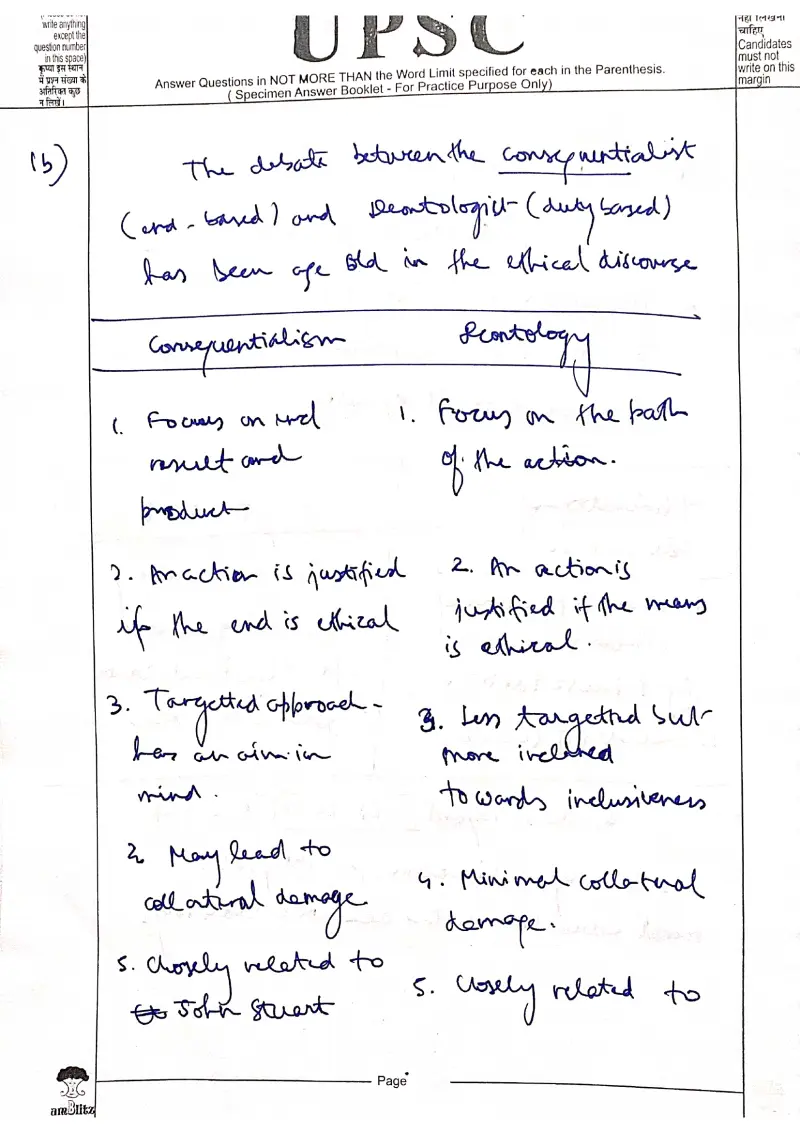 write anything
except the
question number
in this space)
कृपया इस स्थान
में प्रश्न संख्या के
अतिरिक्त कुछ
न लिखें।
UPSC
Answer Questions in NOT MORE THAN the Word Limit specified for each in the Parenthesis.
( Specimen Answer Booklet - For Practice Purpose Only)
नहीं लिखना
चाहिए
Candidates
must not
write on this
margin
1b)
The debate between the consequentialist
(end-based) and Deontologist (duty based)
has been age old in the ethical discourse
Consequentialism Deontology
1. Focus on end
result and
product
1. Focus on the path
of the action.
2. An action is justified
if the end is ethical
2. An action is
justified if the means
is ethical.
3. Targetted approach -
has an aim in
mind.
3. Less targetted but
more inclined
towards inclusiveness
May lead to
collatural damage
4. Minimal collateral
damage.
5. Closely related to
John Stuart
5. Closely related to
Page
amBlitz